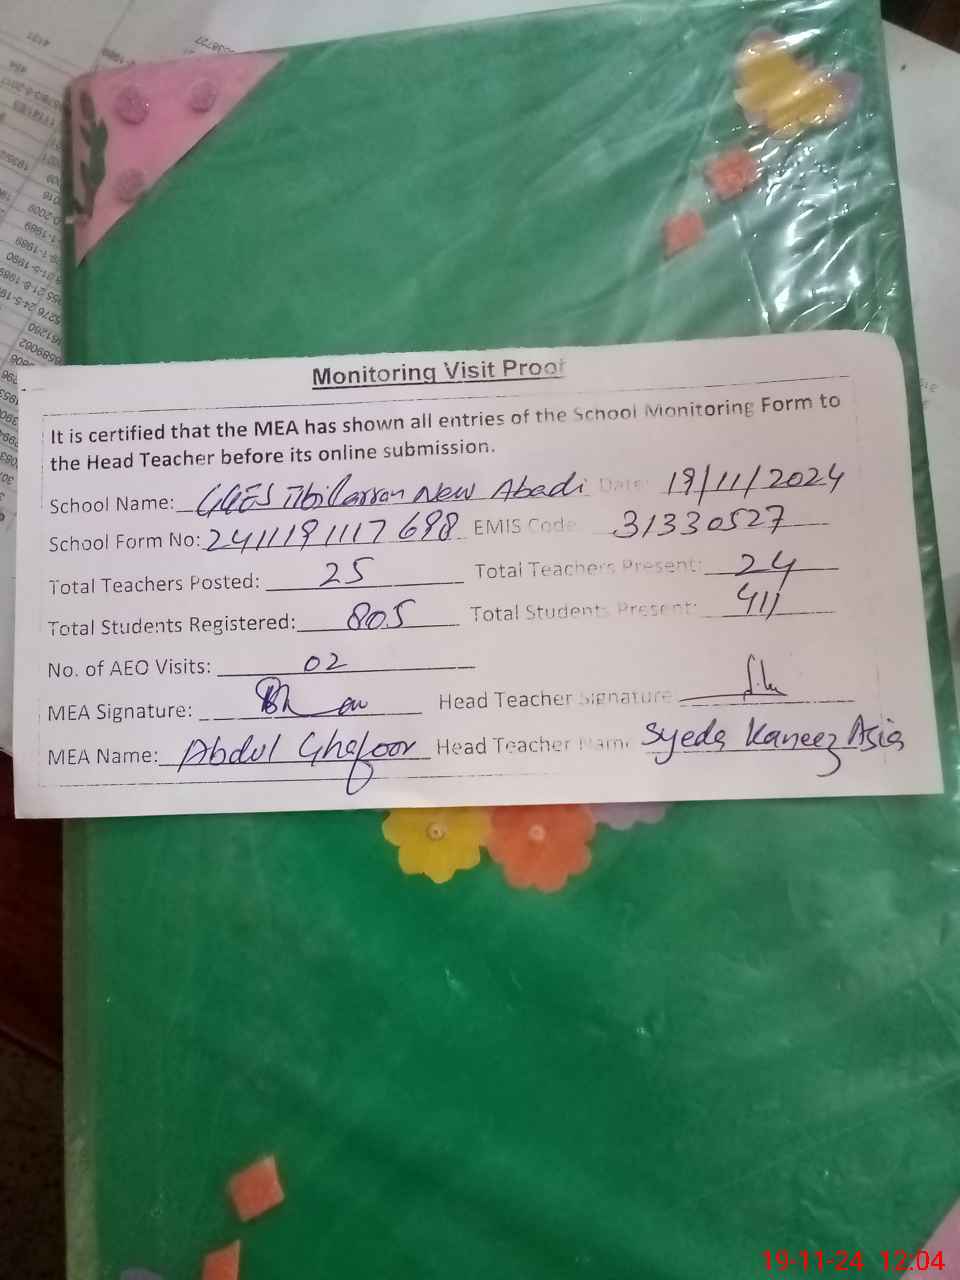 Monitoring Visit Proof
It is certified that the MEA has shown all entries of the School Monitoring Form to
the Head Teacher before its online submission.
School Name: New Abadi Date: 19/11/2024
School Form No: 2411191117698 EMIS Code: 31330527
Total Teachers Posted: 25 Total Teachers Present: 24
Total Students Registered: 805 Total Students Present: 411
No. of AEO Visits: 02
MEA Signature: Head Teacher Signature
MEA Name: Abdul Ghafoor Head Teacher Name Syeda Kaneez Asia
19-11-24 12.04